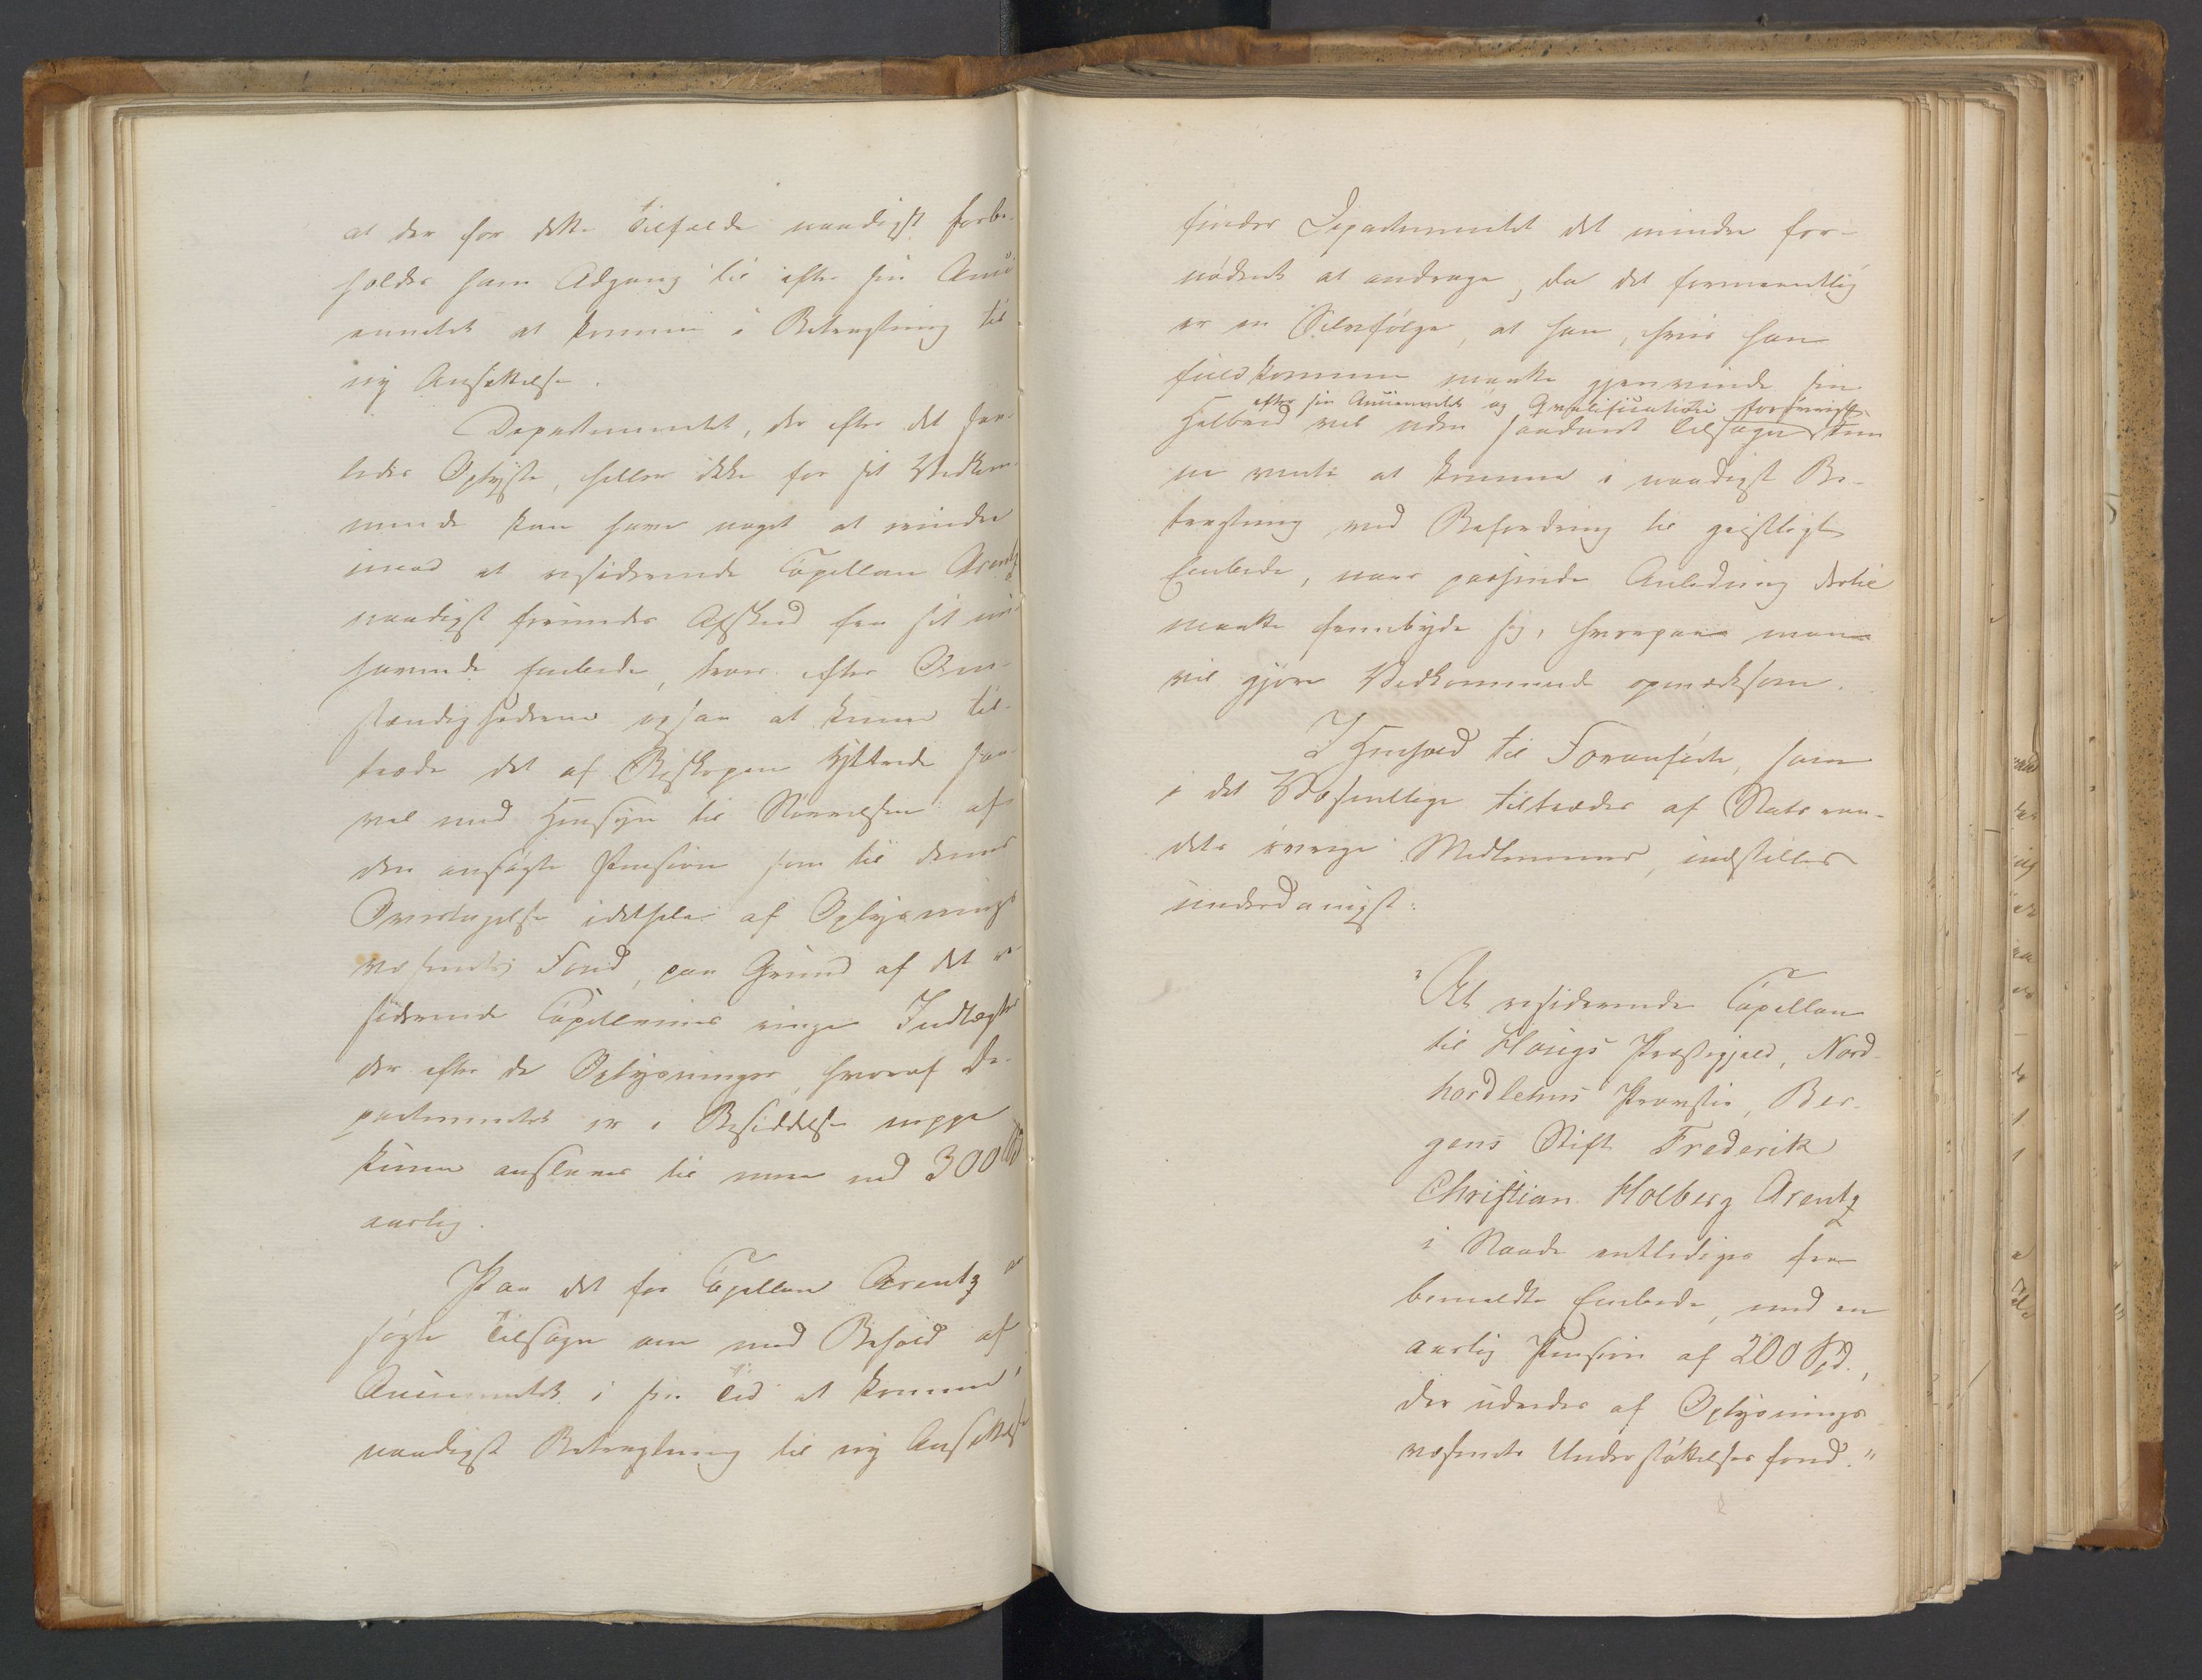 at der for dette Tilfælde naadigst forbe-
holdes ham Adgang til efter sin Anci-
ennetet at komme i Betragtning til
ny Ansættelse.
Departementet, der efter det saa-
ledes Oplyste, heller ikke for sit Vedkom-
mende kan have noget at erindre
imod at residerende Capellan Arentz
naadigst forundes Afsked fra sit nu
havende Embede, troer efter Om-
stændighederne ogsaa at kunne til-
træde det af Biskopen Yttrede saa-
vel med Hensyn til Størrelsen af
den ansøgte Pension som til dennes
Overtagelse idethele af Oplysnings
væsenets Fond, paa Grund af det re-
siderende Capellanies ringe Indtægter
der efter de Oplysninger, hvoraf De-
partementet er i Besiddelse neppe
kunne anslaaes til mere end 300 Spd
aarlig.
Paa det for Capellan Arentz an
søgte Tilsagn om med Behold af
Anciennetet i sin Tid at komme i
naadigst Betragtning til ny Ansættelse
finder Departementet det mindre for-
nødent at andrage, da det formeentlig
er en Selvfølge, at han, hvis han
fuldkommen maatte gjenvinde sin
efter sin Anciennetet og Qvalificationer forøvrigt
Helbred vel uden saadant Tilsagn kun
ne vente at komme i naadigst Be-
tragtning ved Befordring til geistligt
Embede, naar passende Anledning dertil
maatte frembyde sig, hvorpaa man
vil gjøre Vedkommende opmærksom.
I Henhold til Foranførte, som
i det Væsentlige tiltrædes af Statsraa-
dets øvrige Medlemmer, indstilles
underdanigst:
"At residerende Capellan
til Houigs Præstegjeld, Nord-
hordlehns Provstie, Ber-
gens Stift Frederik
Christian Holberg Arentz
i Naade entlediges fra
bemeldte Embede, med en
aarlig Pension af 200 Spd.,
der udredes af Oplysnings-
væsenets Understøttelsesfond."